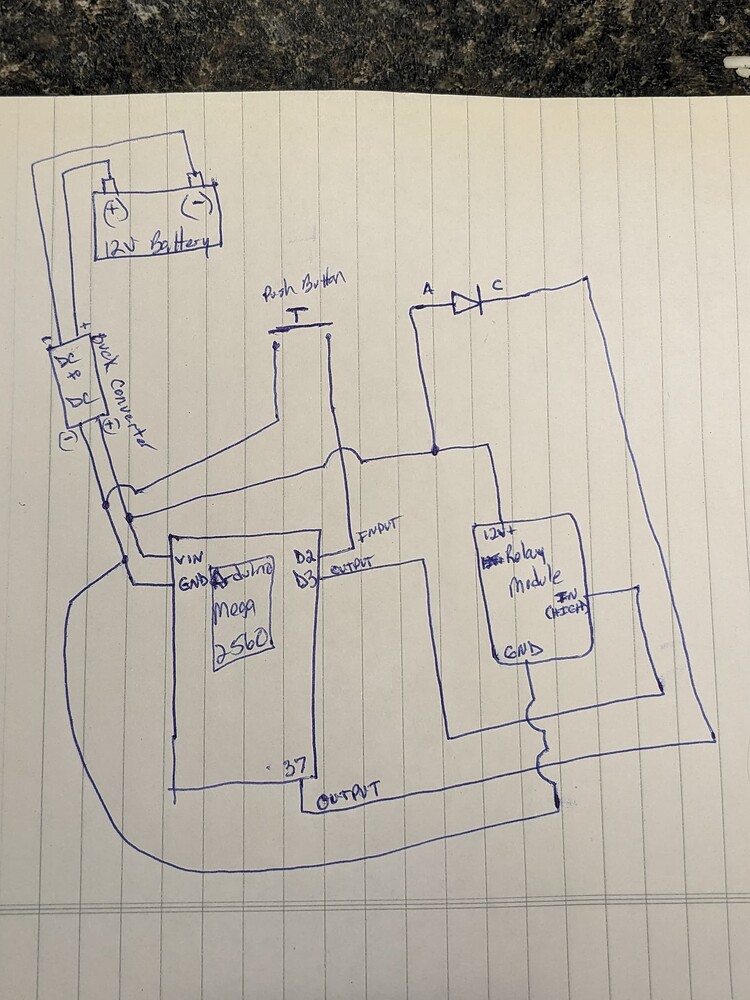 (+) (-)
12V Battery
Push Button
A C
- +
DC to DC
Buck Converter
(-) (+)
VIN
GND
Arduino
Mega
2560
D2 INPUT
D3 OUTPUT
37
OUTPUT
12V+
Relay
Module
IN
(HIGH)
GND